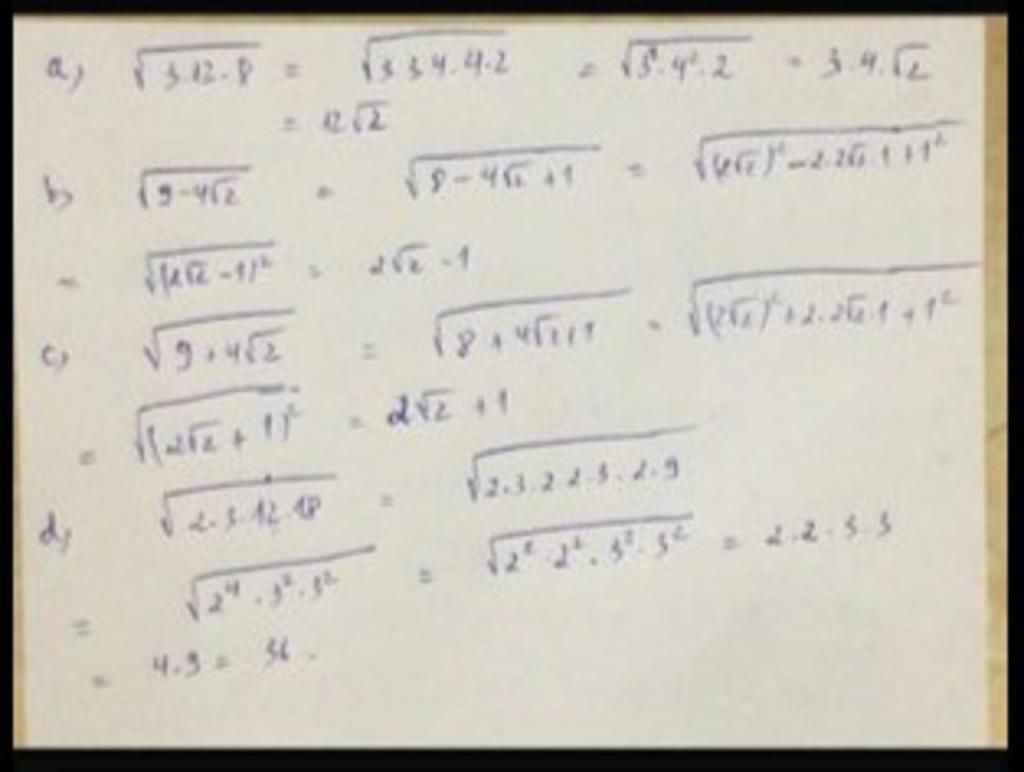 a) √(3·12·8) = √(3·3·4·4·2) = √(3²·4²·2) = 3·4·√2
= 12√2
b) √(9-4√2) = √(8-4√2+1) = √((2√2)²-2·2√2·1+1²)
= √((2√2-1)²) = 2√2-1
c) √(9+4√2) = √(8+4√2+1) = √((2√2)²+2·2√2·1+1²)
= √((2√2+1)²) = 2√2+1
d) √(2·3·12·18) = √(2·3·2·2·3·2·9)
= √(2⁴·3²·3²) = √(2²·2²·3²·3²) = 2·2·3·3
= 4·9 = 36.